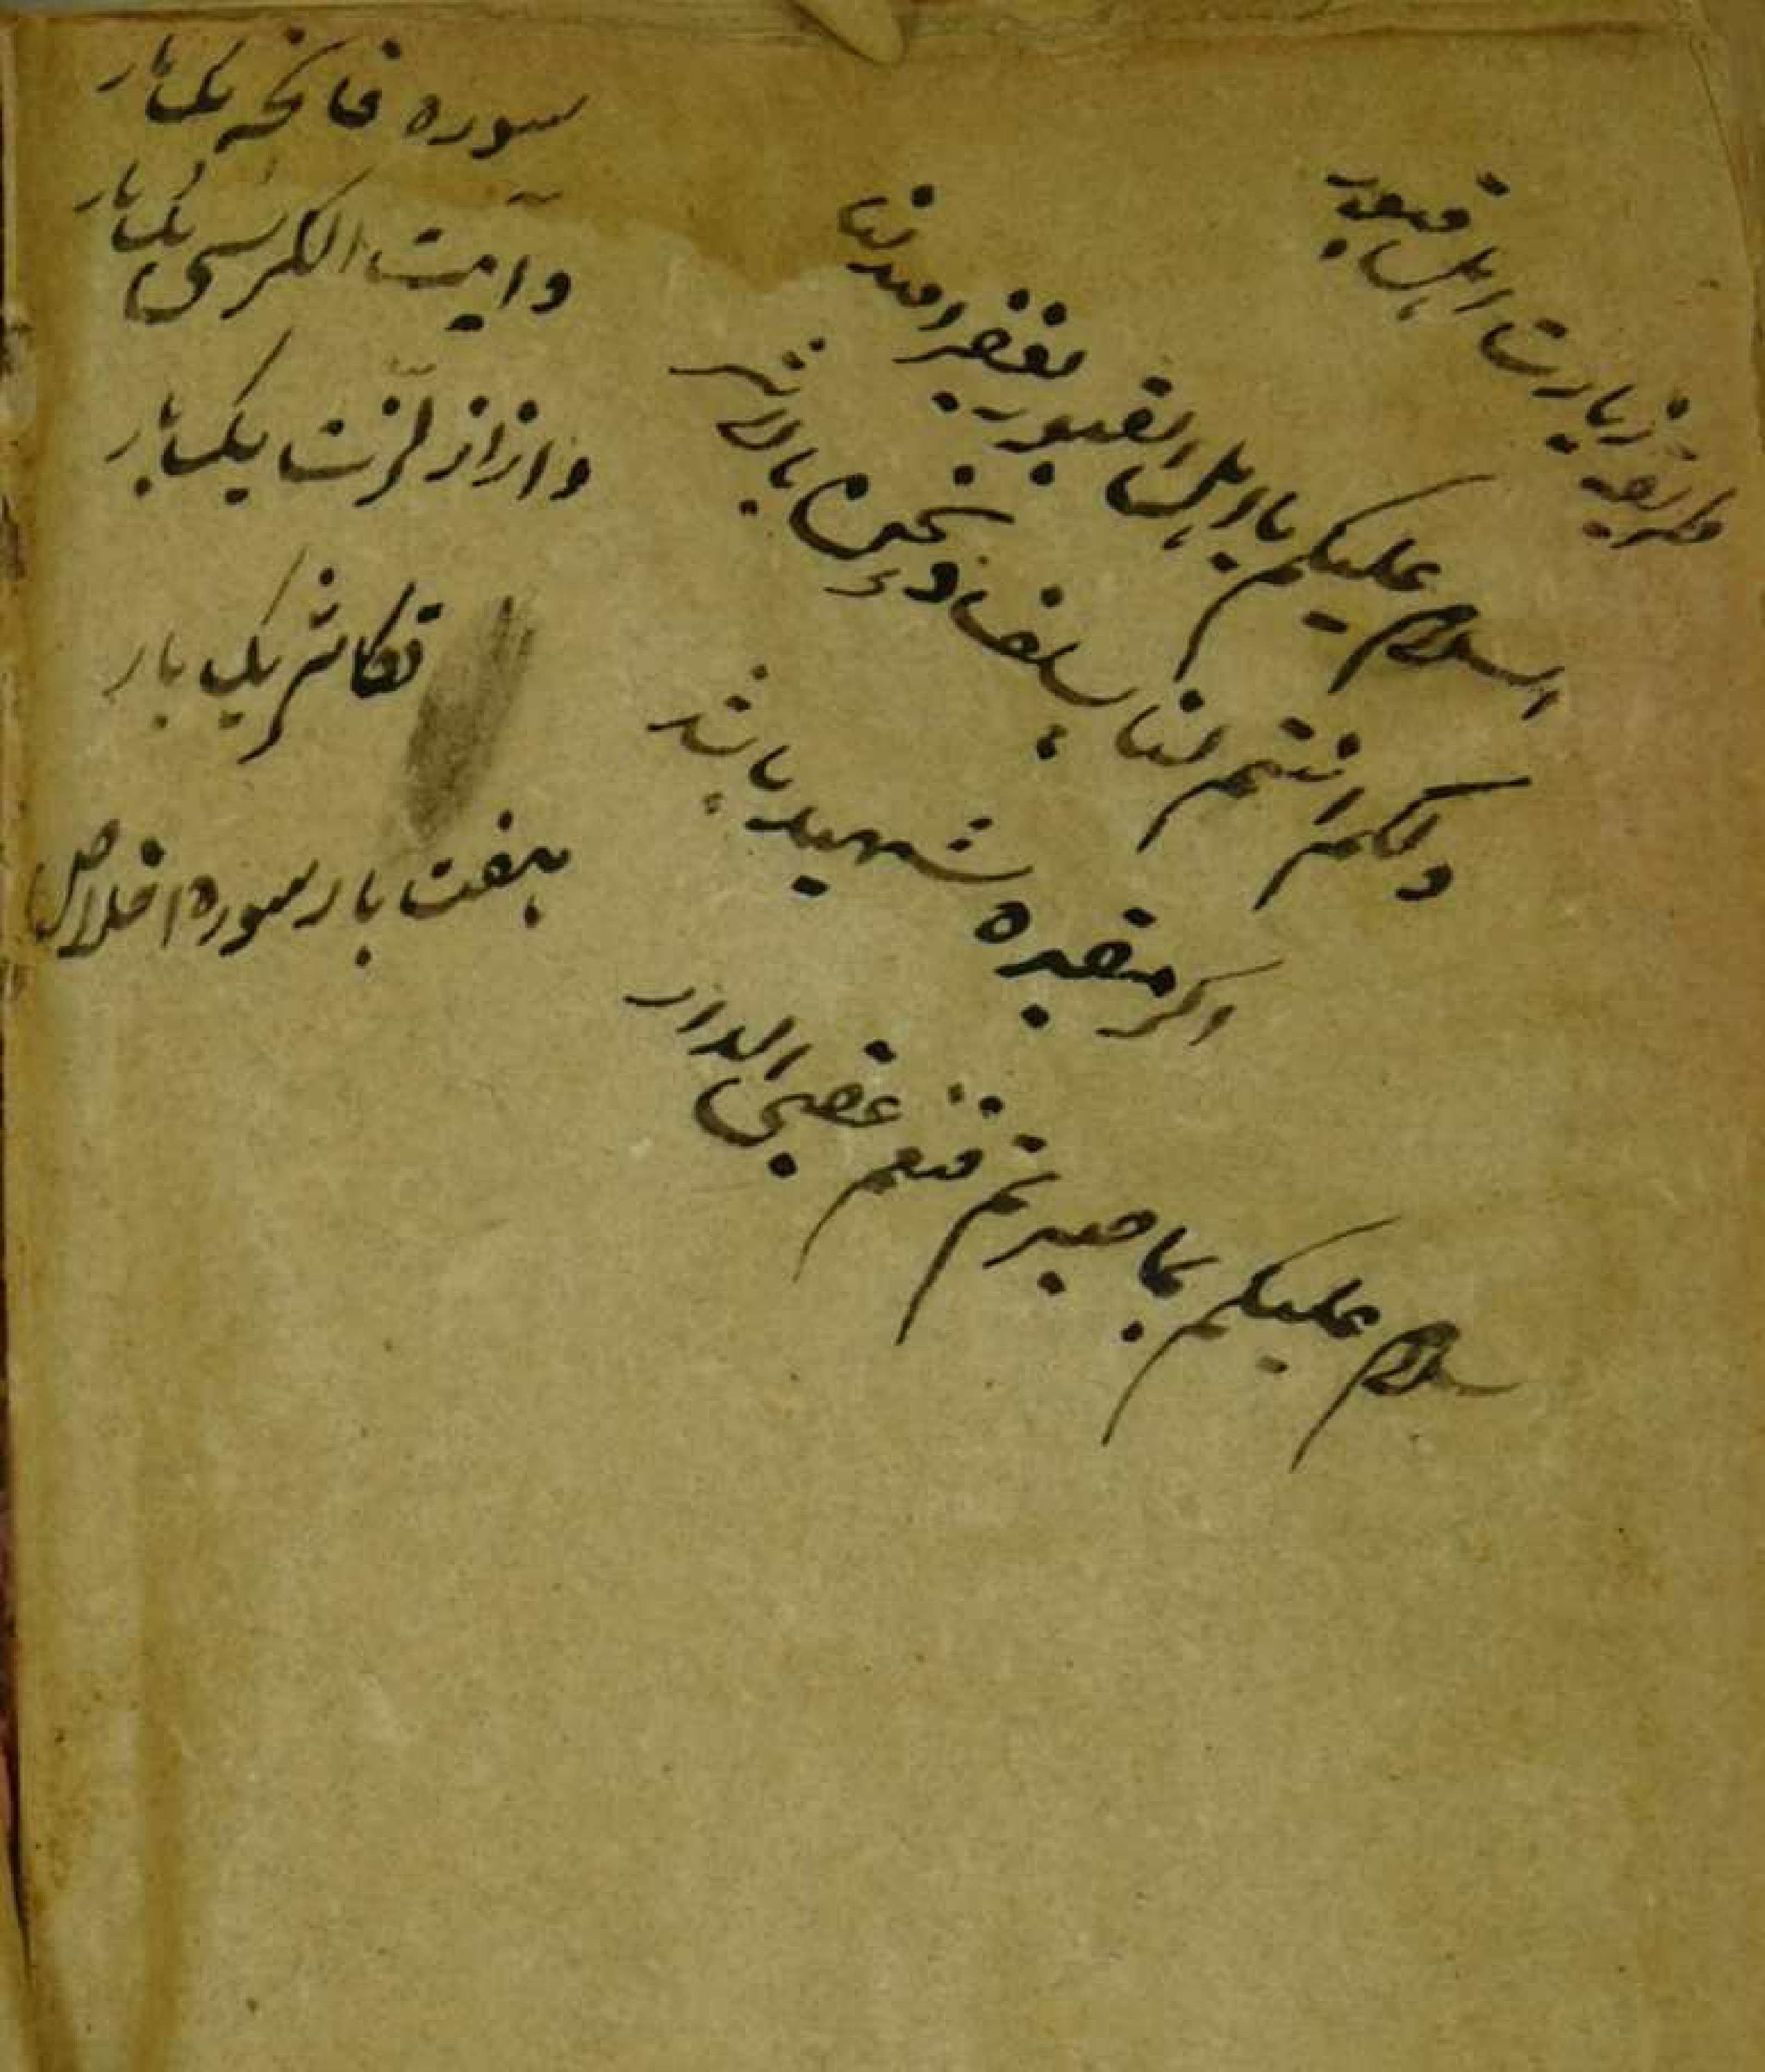 طریقهٔ زیارت اهل قبور
السلام علیکم یا اهل القبور یغفر الله لنا
ولکم انتم لنا سلف و نحن بالاثر
اکر مقبره شهید باشد
سلام علیکم بما صبرتم فنعم عقبی الدار
سوره فاتحه یکبار
وآیت الکرسی یکبار
واذازلزلت یکبار
تکاثر یک بار
هفت بار سوره اخلاص